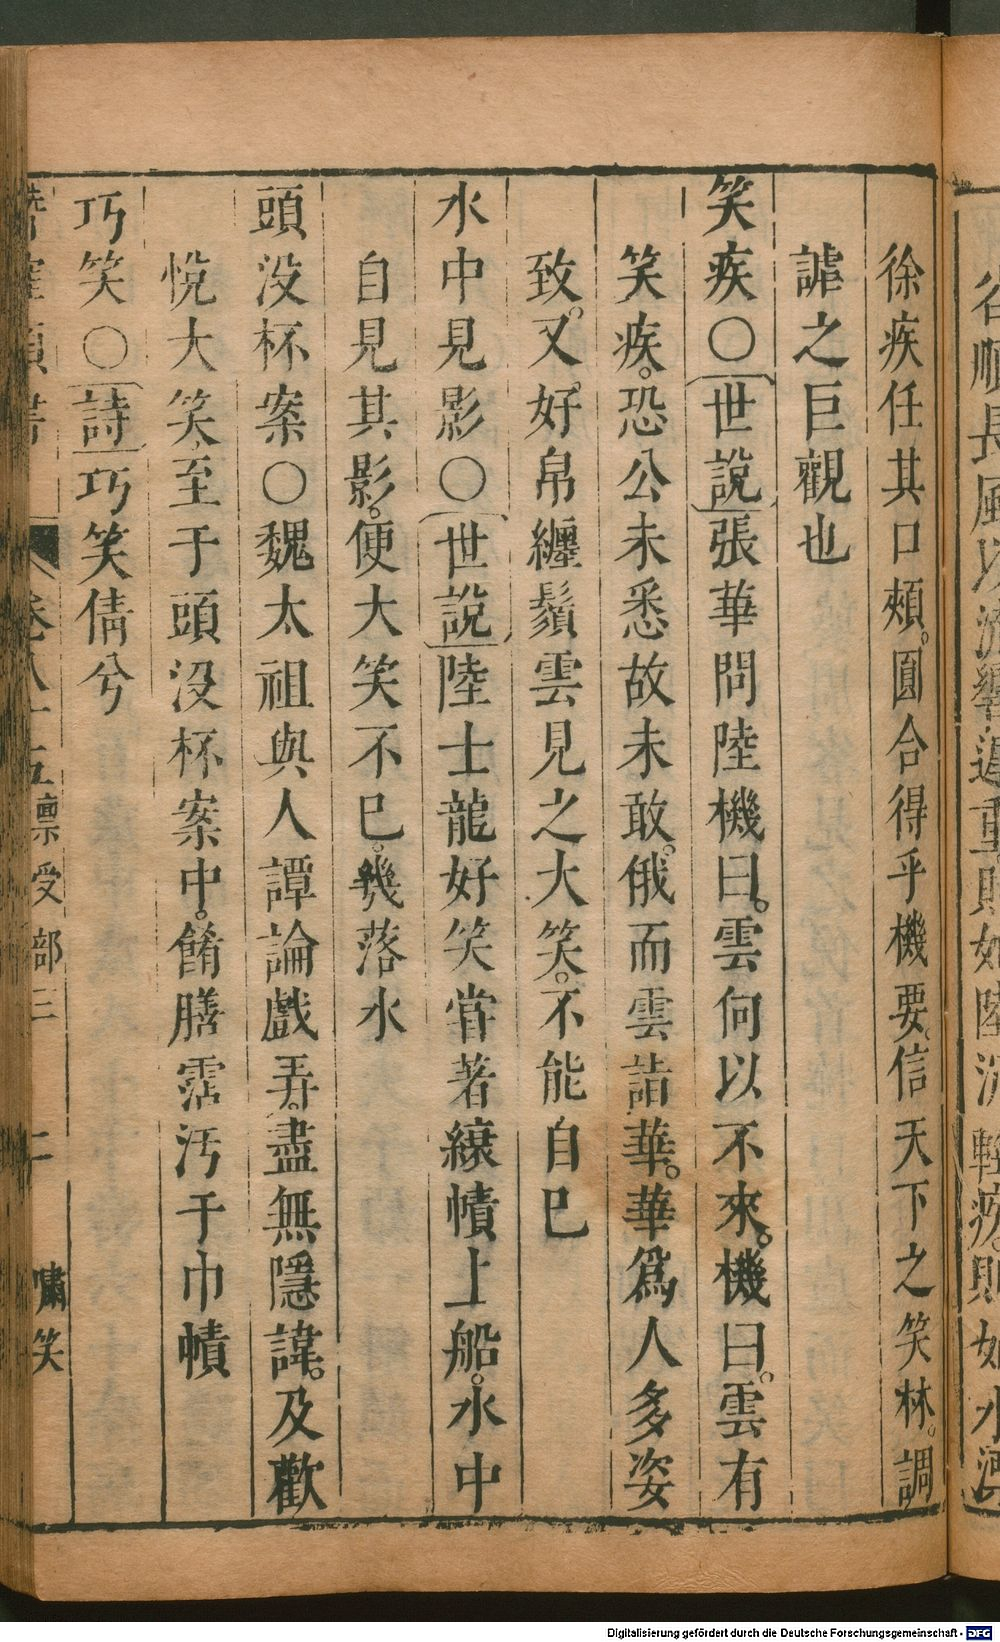 徐疾任其口頰。圓合得乎機要。信天下之笑林。調
謔之巨觀也
笑疾〇世說張華問陸機曰。雲何以不來。機曰。雲有
笑疾。恐公未悉故未敢。俄而雲詣華。華爲人多姿
致。又好帛纏鬚雲見之大笑。不能自已
水中見影〇世說陸士龍好笑嘗著縗幘上船。水中
自見其影。便大笑不已。幾落水
頭没杯案〇魏太祖與人譚論戲弄。盡無隱諱。及歡
悅大笑至于頭没杯案中。餚膳霑汚于巾幘
巧笑〇詩巧笑倩兮
卷八十五稟受部三 二 嘯笑
Digitalisierung gefördert durch die Deutsche Forschungsgemeinschaft - DFG